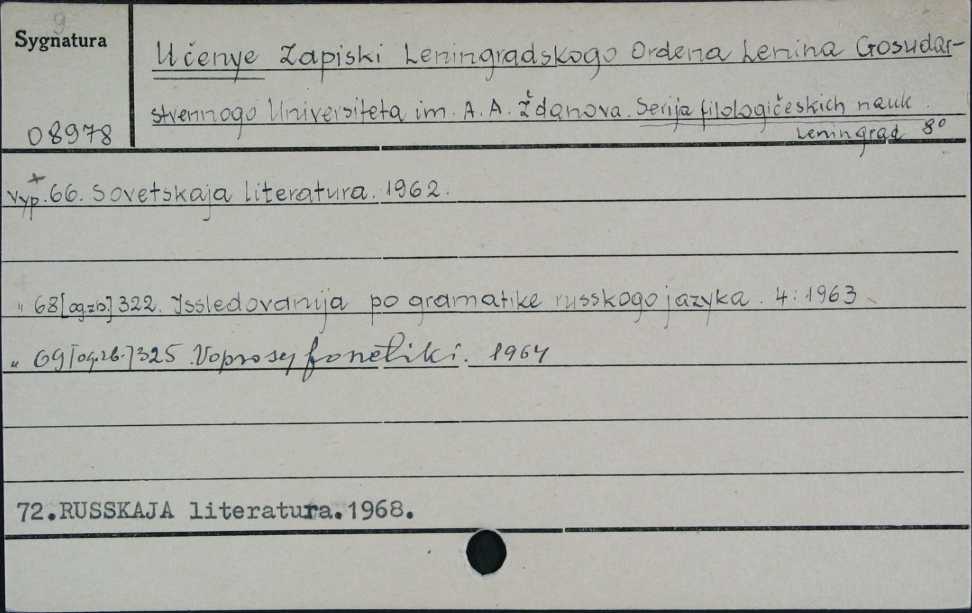 9
Sygnatura
Učenye Zapiski Leningradskogo Ordena Lenina Gosudar-
stvennogo Universiteta im. A. A. Ždanova. Serija filologičeskich nauk.
08978
Leningrad 8°
+
Vyp. 66. Sovetskaja literatura. 1962.
„ 68[og.zb.] 322. Issledovanija po gramatike russkogo jazyka. 4: 1963
„ 69[og.zb.] 325. Voprosy fonetiki. 1964
72.RUSSKAJA literatura.1968.